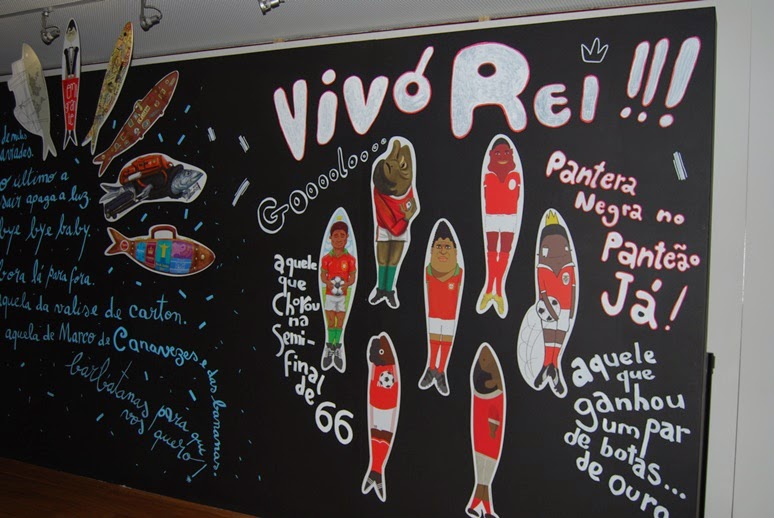 o último a
sair apaga a luz.
bye bye baby.
bora lá para fora.
aquela da valise de carton.
aquela de Marco de Canavezes e das bananas.
barbatanas para que
vos quero!
VIVÓ REI!!!
Goooolo...
aquele
que
chorou
na
Semi-
final
de
66
PANTERA
NEGRA NO
PANTEÃO
JÁ!
aquele
que
ganhou
um par
de botas...
de ouro